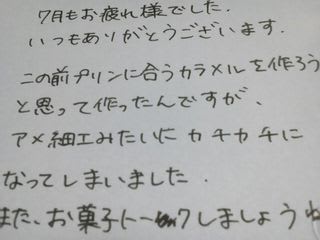 7月もお疲れ様でした.
いつもありがとうございます.
この前プリンに合うカラメルを作ろう
と思って作ったんですが、
アメ細工みたいに カチカチに
なってしまいました.
また、お菓子トークしましょうね